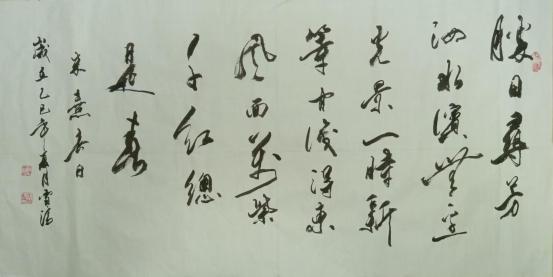 勝日尋芳
泗水濱無邊
光景一時新
等閒識得東
風面萬紫
千紅總
是春
朱熹春日
乙巳年夏月